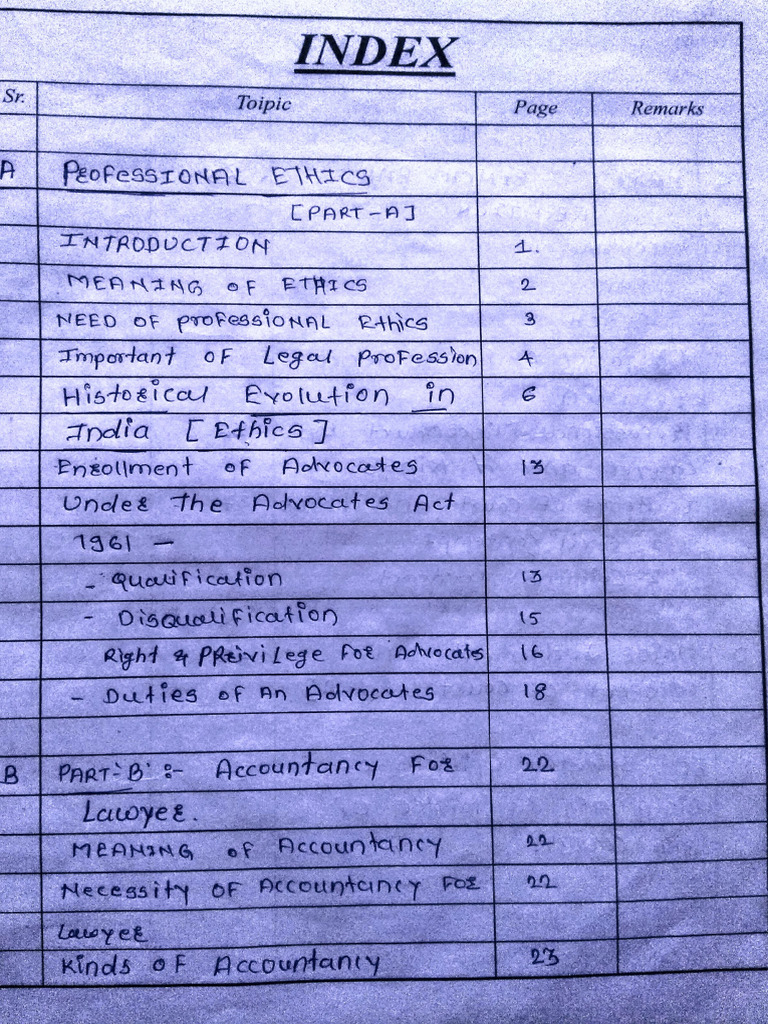 INDEX
Sr. Toipic Page Remarks
A PROFESSIONAL ETHICS
[PART-A]
INTRODUCTION 1.
MEANING OF ETHICS 2
NEED OF PROFESSIONAL Ethics 3
Important OF Legal Profession 4
Historical Evolution in 6
India [Ethics]
Enrollment of Advocates 13
Under The Advocates Act
1961 —
- Qualification 13
- Disqualification 15
Right & PReivilege For Advocates 16
- Duties of An Advocates 18
B PART-'B' :- Accountancy For 22
Lawyer.
MEANING of Accountancy 22
Necessity OF Accountancy For 22
Lawyer
Kinds OF Accountancy 23